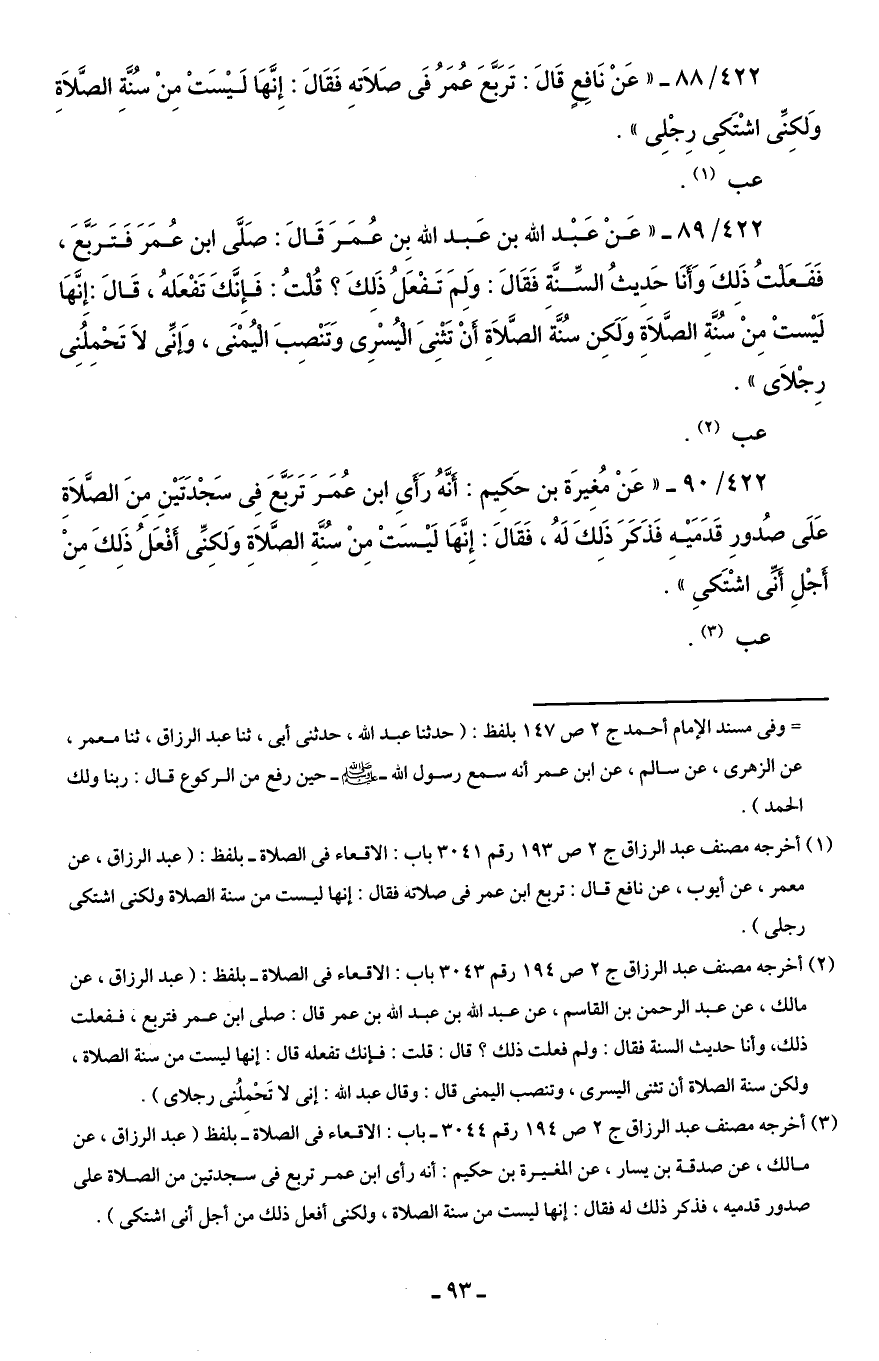 ٤٢٢/ ٨٨ ـ « عَنْ نَافِعٍ قَالَ : تَرَبَّعَ عُمَرُ فِى صَلَاتِهِ فَقَالَ : إِنَّهَا لَـيْسَتْ مِنْ سُنَّةِ الصَّلَاةِ
وَلَكِنِّى اشْتَكِى رِجْلِى » .
عب (١) .
٤٢٢/ ٨٩ ـ « عَـنْ عَبْـدِ الله بنِ عَـبدِ الله بنِ عُـمَـرَ قَـالَ : صَلَّى ابن عُـمَرَ فَـتَـرَبَّعَ ،
فَفَـعَلْتُ ذَلِكَ وَأَنَا حَدِيثُ السِّـنَّةِ فَقَالَ : وَلِمَ تَـفْعَلُ ذَلِكَ ؟ قُلْتُ : فَـإِنَّكَ تَفْعَلهُ ، قَـالَ :إِنَّهَا
لَيْسَتْ مِنْ سُنَّةِ الصَّلَاةِ وَلَكِن سُنَّةُ الصَّلَاةِ أَنْ تَثْنِىَ الْيُسْرى وَتَنْصِبَ الْيُمْنَى ، وَإِنِّى لاَ تَحْمِلُنِى
رِجْلاَى » .
عب (٢) .
٤٢٢/ ٩٠ ـ « عَنْ مُغِيرَة بنِ حَكِيم : أَنَّهُ رَأَى ابن عُمَـرَ تَرَبَّعَ فِى سَجْدَتَيْنِ مِنَ الصَّلَاةِ
عَلَى صُدُورِ قَدَمَيْـهِ فَذَكَرَ ذَلِكَ لَهُ ، فَقَالَ : إِنَّهَا لَيْـسَتْ مِنْ سُنَّةِ الصَّلَاةِ وَلَكِنِّى أَفْعَلُ ذَلِكَ مِنْ
أَجْلِ أَنِّى اشْتَكِى » .
عب (٣) .
= وفى مسند الإمام أحـمد ج ٢ ص ١٤٧ بلفظ : ( حدثنا عبـد الله ، حدثنى أبى ، ثنا عبد الرزاق ، ثنا مـعمر ،
عن الزهرى ، عن سـالم ، عن ابن عـمر أنه سمع رسـول الله ـ ﷺ ـ حين رفع من الـركوع قـال : ربنا ولك
الحمد ) .
(١) أخرجه مصنف عبد الرزاق ج ٢ ص ١٩٣ رقم ٣٠٤١ باب : الاقـعاء فى الصلاة ـ بلفظ : ( عبد الرزاق ، عن
معمر ، عن أيوب ، عن نافع قـال : تربع ابن عمر فى صلاته فقال : إنها ليـست من سنة الصلاة ولكنى اشتكى
رجلى ) .
(٢) أخرجه مصنف عبد الرزاق ج ٢ ص ١٩٤ رقم ٣٠٤٣ باب : الاقـعاء فى الصلاة ـ بلفظ : ( عبد الرزاق ، عن
مالك ، عن عـبد الرحمن بن القاسم ، عن عبـد الله بن عبـد الله بن عمر قال : صلى ابن عـمر فتربع ، فـفعلت
ذلك، وأنا حديث السنة فقال : ولم فعلت ذلك ؟ قال : قلت : فـإنك تفعله قال : إنها ليست من سنة الصلاة ،
ولكن سنة الصلاة أن تثنى اليسرى ، وتنصب اليمنى قال : وقال عبد الله : إنى لا تَحْمِلُنى رجلاى ) .
(٣) أخرجه مصنف عبد الرزاق ج ٢ ص ١٩٤ رقم ٣٠٤٤ ـ باب : الاقـعاء فى الصلاة ـ بلفظ ( عبد الرزاق ، عن
مـالك ، عن صدقـة بن يسار ، عن المغيـرة بن حكيم : أنه رأى ابن عمـر تربع فى سـجدتين من الصـلاة على
صدور قدميه ، فذكر ذلك له فقال : إنها ليست من سنة الصلاة ، ولكنى أفعل ذلك من أجل أنى اشتكى ) .
ـ ٩٣ ـ